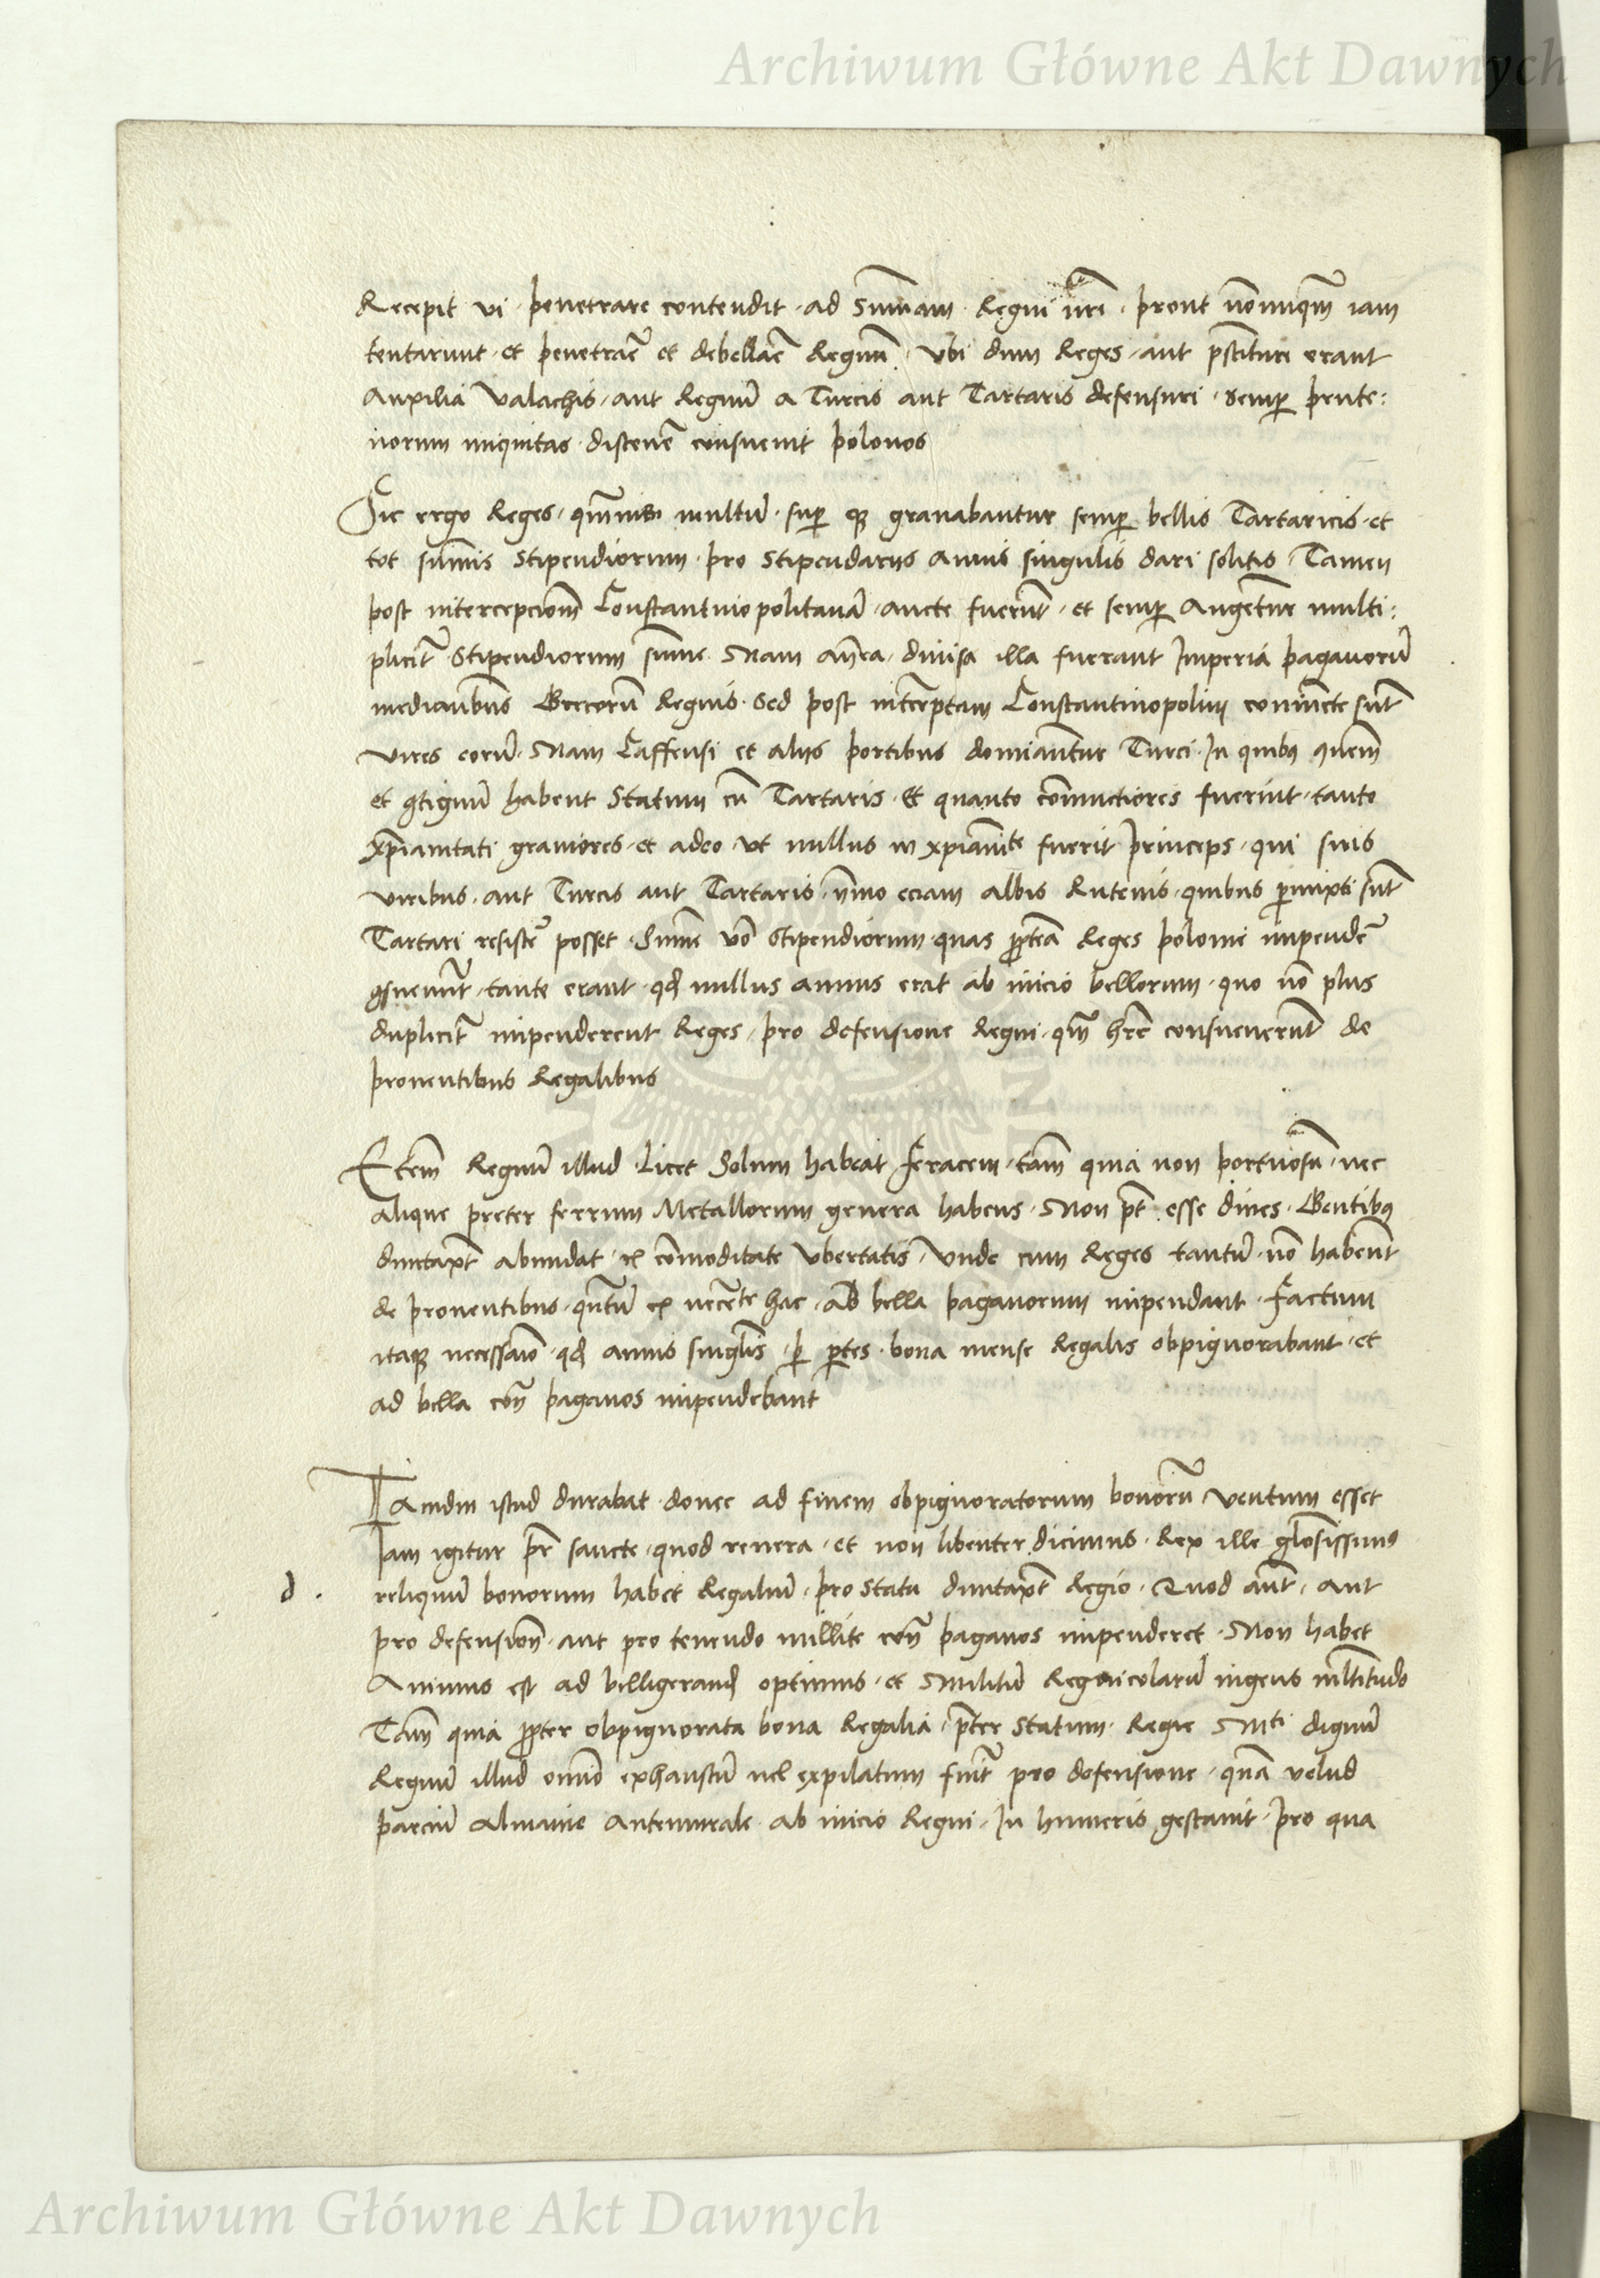 Archiwum Główne Akt Dawnych
Recepit vi penetrare contendit · ad Sum̄am Regni nr̄i · prout nōnuq̄m iam
tentarunt · et penetrar̄e et debellar̄e Regnū · Vbi dum Reges · aut p̄stituri erant
Auxilia Valachis · aut Regnū a Turcis aut Tartaris defensuri · semp̄ prute:
norum iniquitas distener̄e consuevit polonos
Sic ergo Reges · q̄mvis multū · sup̄ q̨ gravabantur semp̄ bellis Tartaricis · et
tot sum̄is Stipendiorum · pro Stipendariis Annis singulis dari solitis · Tamen
post intercepcionē Constantinopolitanā · aucte fuerūt · et semp̄ Augētur multi:
plicit̄ Stipendiorum sum̄e Nam an̄ea · divisa illa fuerant Imperia paganorū
mediantibus Grecorū Regnis · Sed post intercēptam Constantinopolim coniuncte sūt
vires eorū · Nam Caffensi et aliis portibus dominantur Turci · In quibus
et 9tiguū habent Statum cū Tartaris · Et quanto coniunctiores fuerint · tanto
xp̄ianitati graviores · et adeo vt nullus in xp̄ianite fuerit Princeps · qui suis
viribus · aut Turcis aut Tartaris · īmo eciam albis Rutenis · quibus p̄mixti sūt
Tartari resister̄e posset · Sum̄e v̄o stipendiorum quas p̄pterea Reges poloni impender̄e
9sueverūt · tante erant · qd̄ nullus annus erat ab inicio bellorum · quo nō plus
duplicit̄ impenderent Reges · pro defensione Regni · q̄m hr̄e consueverūt de
proventibus Regalibus
Etem̄ Regnū illud Licet Solum habeat feracem · tam̄ quia non portuosū · nec
alique preter ferrum Metallorum genera habens · Non pt̄ esse dives · Gentibus
duntaxat abundat · et cōmoditate Vbertatis · Vnde cum Reges tantū nō habent
de proventibus · quantū ex necc̄te hac · Ad bella paganorum impendant · Factum
itaq̨ necessario · qd̄ annis singulis · p̄ partes · bona mense Regalis obpignorabant · et
ad bella con̄ paganos impendebant
Tamdiu istud durabat · donec ad finem obpignoratorum bonorū ventum esset
Iam igitur pr̄ sancte · quod revera · et non libenter dicimus · Rex ille gl̄osissimus
d · reliquū bonorum habet Regaliū · pro statu duntaxat Regio · Quod aut̄ · aut
pro defension̄ · aut pro tenendo millite con̄ paganos impenderet · Non habet
Animus est ad belligerand̄ optimus · et Militū Regnicolarū ingens multitudo
Tam̄ quia p̄pter obpignorata bona Regalia · p̄ter Statum Regie Mti dignū
Regnū illud omnīo exhaustū vel expilatum fuit̄ pro defensione · quā velud
parciū Almanie Antemurale ab inicio Regni · In humeris gestavit · Pro qua
Archiwum Główne Akt Dawnych